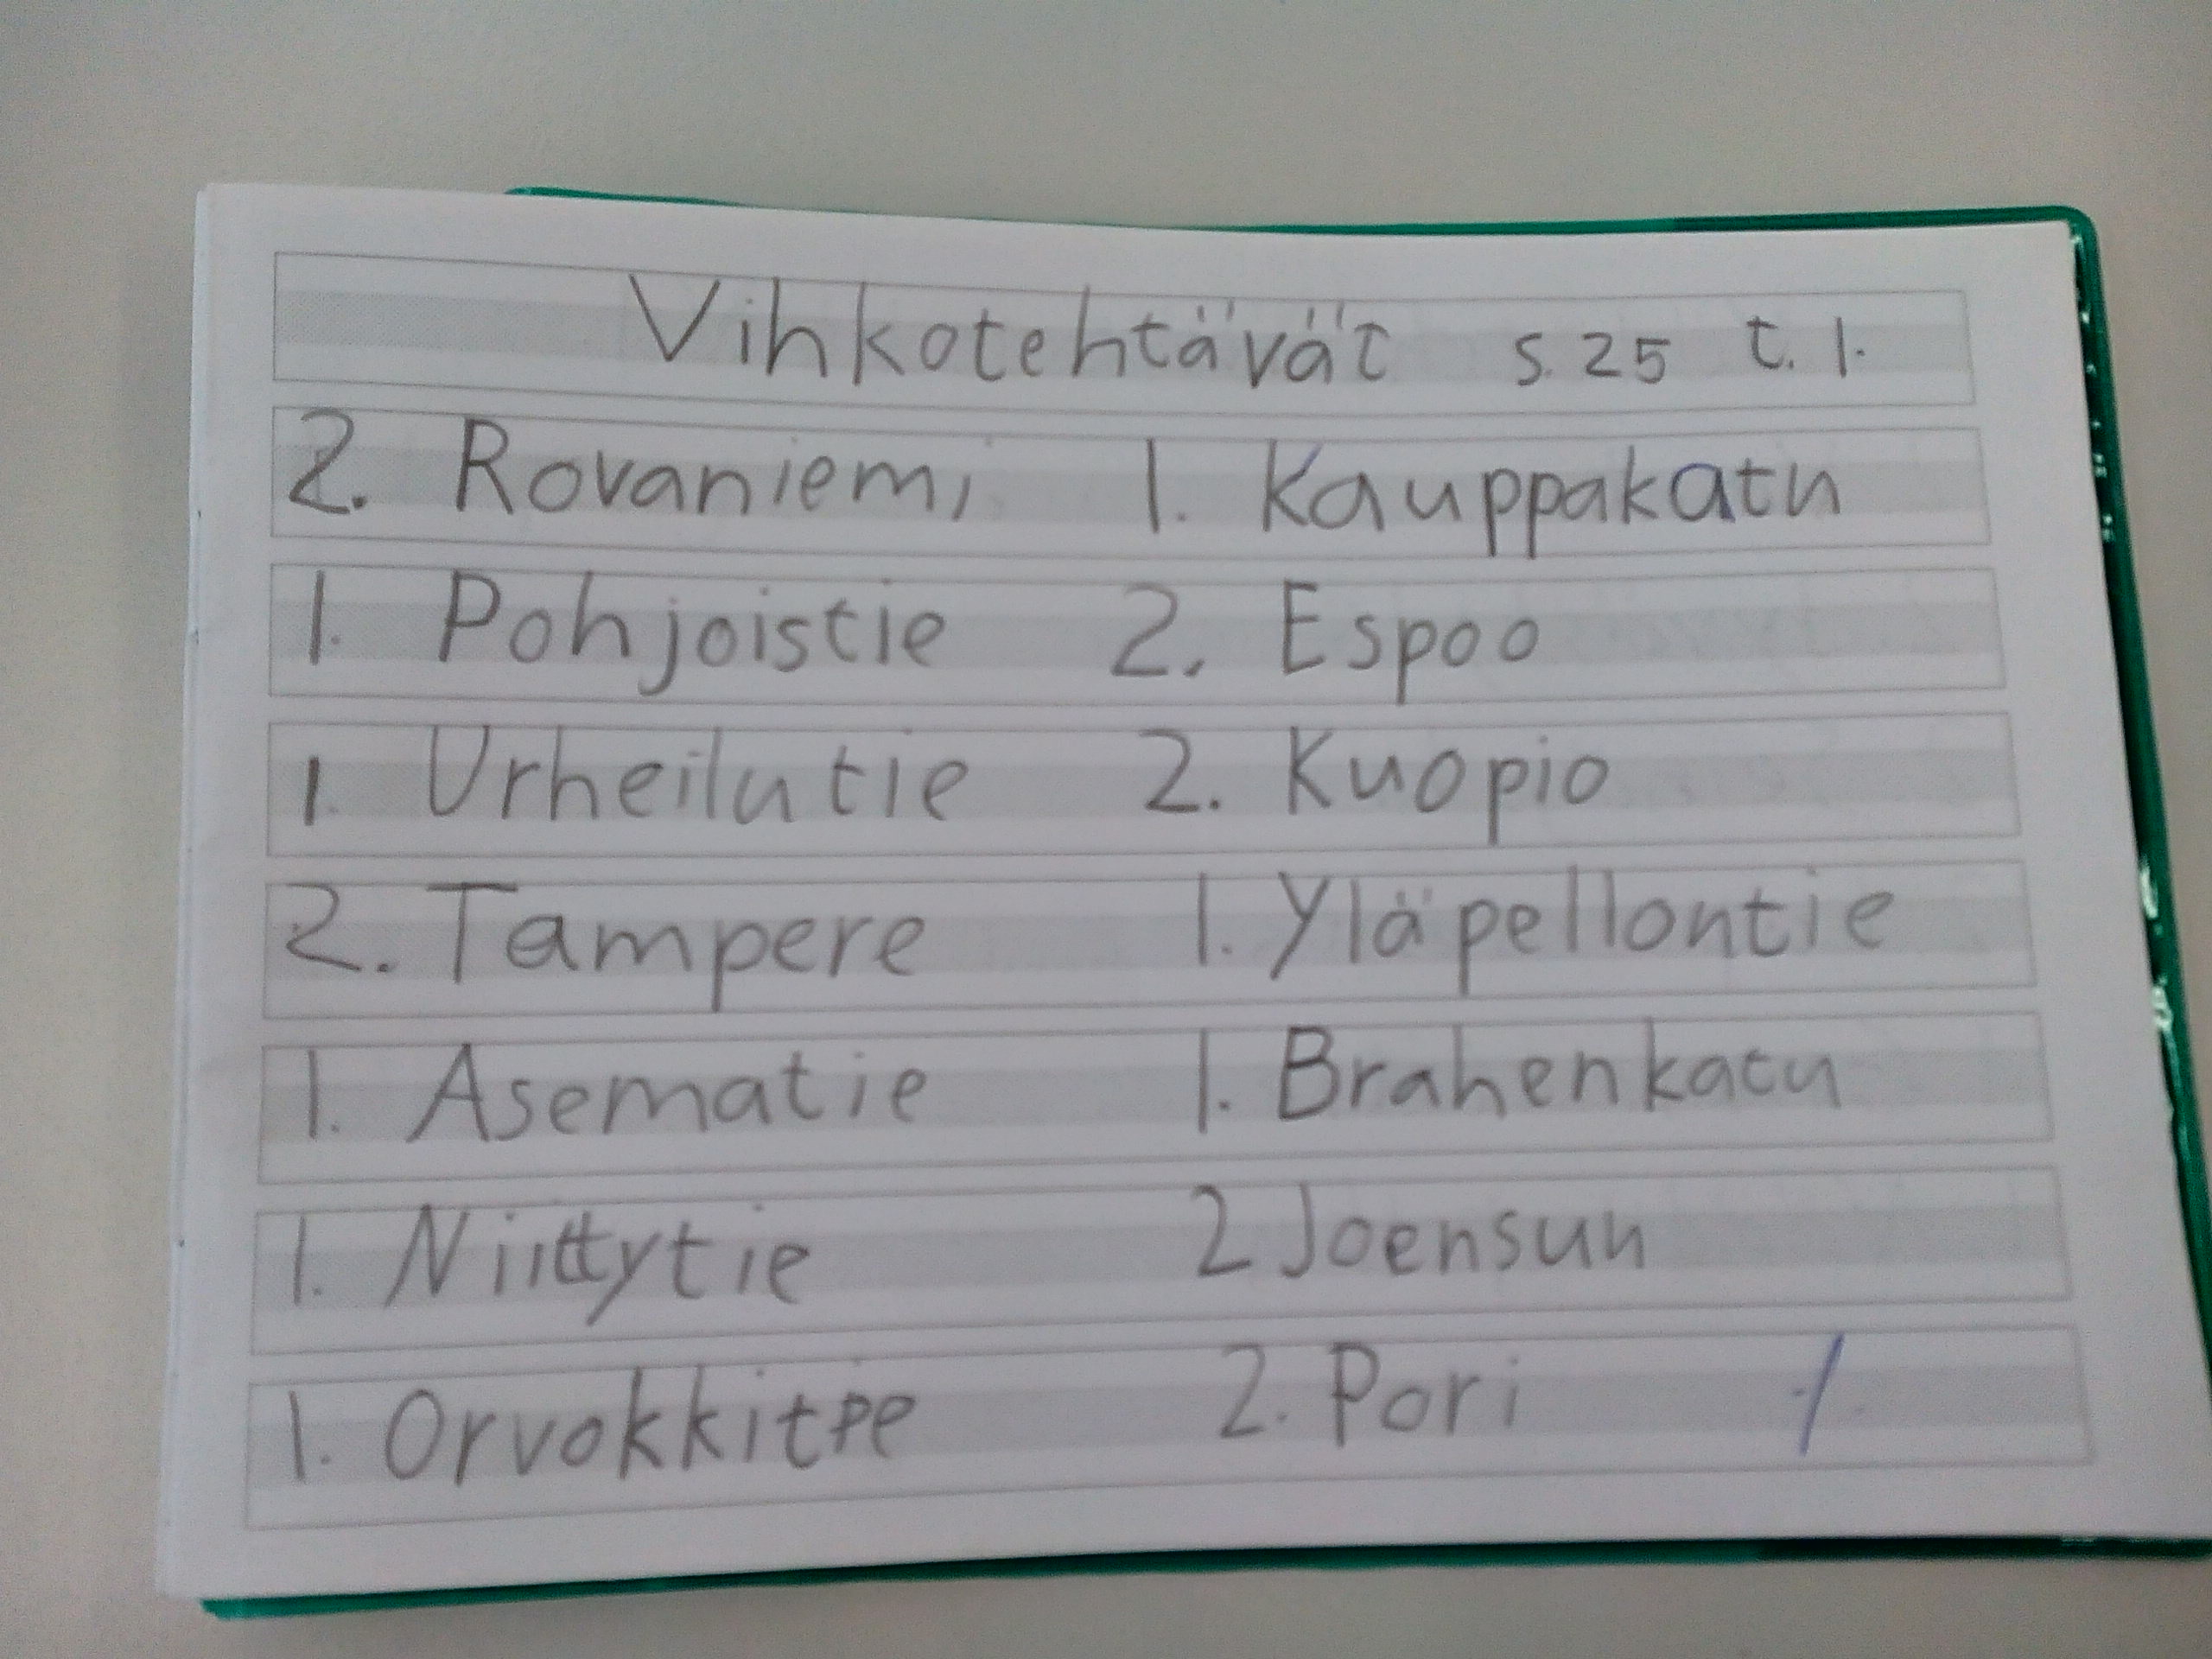 Vihkotehtävät s. 25 t. 1.
2. Rovaniemi 1. Kauppakatu
1. Pohjoistie 2. Espoo
1. Urheilutie 2. Kuopio
2. Tampere 1. Yläpellontie
1. Asematie 1. Brahenkatu
1. Niittytie 2 Joensuu
1. Orvokkitie 2. Pori